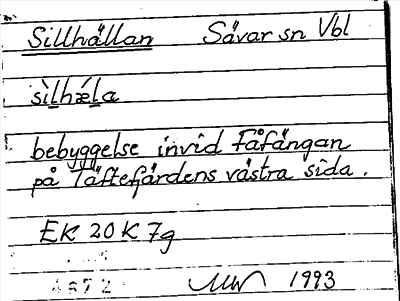 Sillhällan Sävar sn Vbl
sìlhǽla
bebyggelse invid Fåfängan
på Täftefjärdens västra sida.
EK 20 K 7g
4672 1993